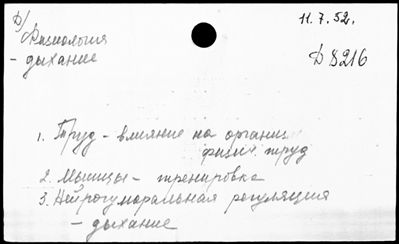 Д/
Физиология
- дыхание
11.7.52.
Д 8216
1. Труд - влияние на организм
физич. труд
2. Мышцы - тренировка
3. Нейрогуморальная регуляция
- дыхание